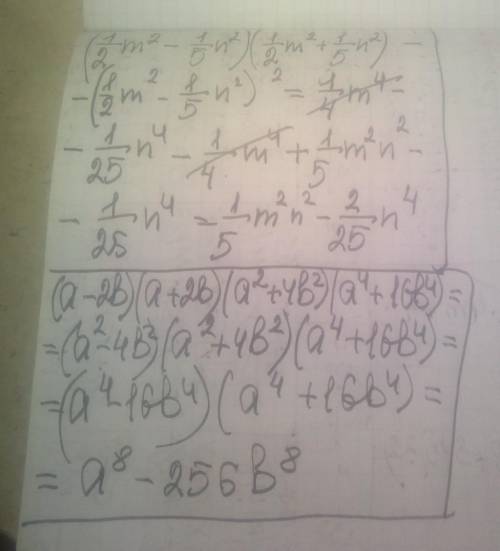 (1/2 m² - 1/5 n²)(1/2 m² + 1/5 n²) -
- (1/2 m² - 1/5 n²)² = 1/4 m⁴ -
- 1/25 n⁴ - 1/4 m⁴ + 1/5 m² n² -
- 1/25 n⁴ = 1/5 m² n² - 2/25 n⁴
(a - 2b)(a + 2b)(a² + 4b²)(a⁴ + 16b⁴) =
= (a² - 4b²)(a² + 4b²)(a⁴ + 16b⁴) =
= (a⁴ - 16b⁴)(a⁴ + 16b⁴) =
= a⁸ - 256b⁸